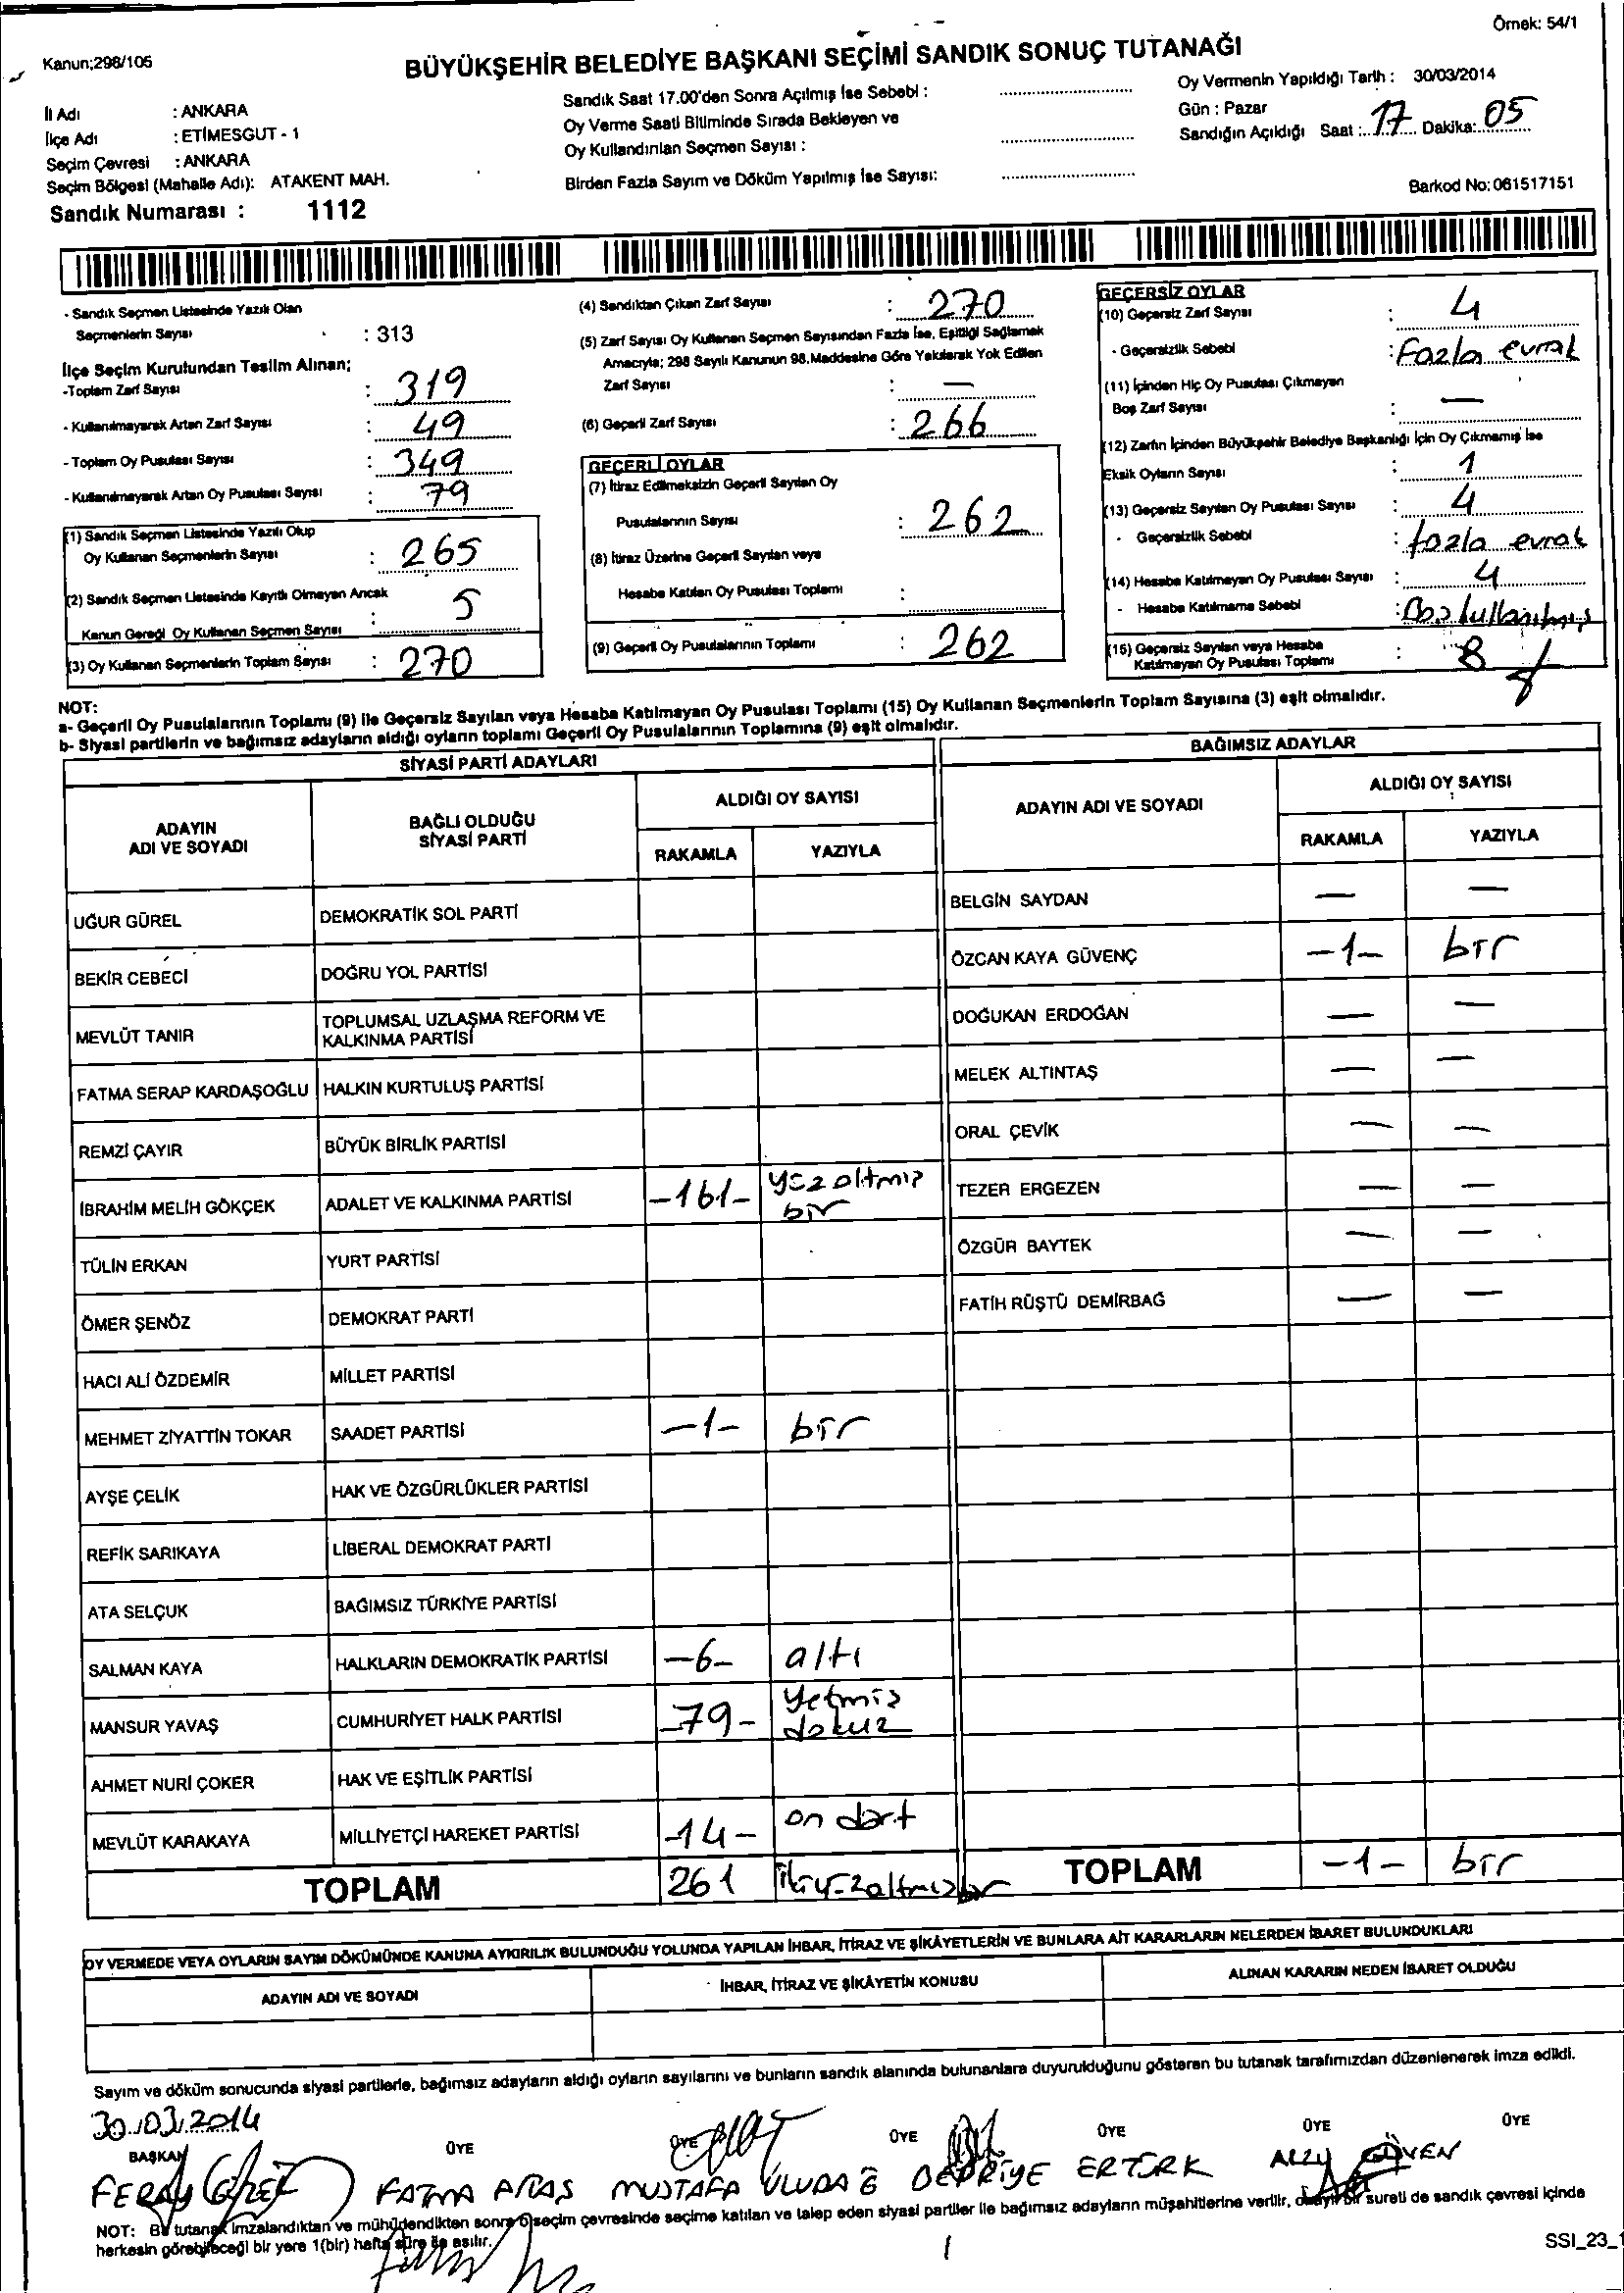 Örnek: 54/1
Kanun;298/105
BÜYÜKŞEHİR BELEDİYE BAŞKANI SEÇİMİ SANDIK SONUÇ TUTANAĞI
İl Adı : ANKARA
İlçe Adı : ETİMESGUT - 1
Seçim Çevresi : ANKARA
Seçim Bölgesi (Mahalle Adı): ATAKENT MAH.
Sandık Numarası : 1112
Sandık Saat 17.00'den Sonra Açılmış İse Sebebi :
Oy Verme Saati Bitiminde Sırada Bekleyen ve
Oy Kullandırılan Seçmen Sayısı :
Birden Fazla Sayım ve Döküm Yapılmış İse Sayısı:
Oy Vermenin Yapıldığı Tarih : 30/03/2014
Gün : Pazar
Sandığın Açıldığı Saat : 17 Dakika: 05
Barkod No: 061517151
- Sandık Seçmen Listesinde Yazılı Olan
Seçmenlerin Sayısı : 313
İlçe Seçim Kurulundan Teslim Alınan;
-Toplam Zarf Sayısı : 319
- Kullanılmayarak Artan Zarf Sayısı : 49
- Toplam Oy Pusulası Sayısı : 349
- Kullanılmayarak Artan Oy Pusulası Sayısı : 79
(1) Sandık Seçmen Listesinde Yazılı Olup
Oy Kullanan Seçmenlerin Sayısı : 265
(2) Sandık Seçmen Listesinde Kayıtlı Olmayan Ancak
Kanun Gereği Oy Kullanan Seçmen Sayısı : 5
(3) Oy Kullanan Seçmenlerin Toplam Sayısı : 270
(4) Sandıktan Çıkan Zarf Sayısı : 270
(5) Zarf Sayısı Oy Kullanan Seçmen Sayısından Fazla İse, Eşitliği Sağlamak
Amacıyla; 298 Sayılı Kanunun 98.Maddesine Göre Yakılarak Yok Edilen
Zarf Sayısı : —
(6) Geçerli Zarf Sayısı : 266
GEÇERLİ OYLAR
(7) İtiraz Edilmeksizin Geçerli Sayılan Oy
Pusulalarının Sayısı : 262
(8) İtiraz Üzerine Geçerli Sayılan veya
Hesaba Katılan Oy Pusulası Toplamı :
(9) Geçerli Oy Pusulalarının Toplamı : 262
GEÇERSİZ OYLAR
(10) Geçersiz Zarf Sayısı : 4
- Geçersizlik Sebebi : Fazla evrak
(11) İçinden Hiç Oy Pusulası Çıkmayan
Boş Zarf Sayısı : —
(12) Zarfın İçinden Büyükşehir Belediye Başkanlığı İçin Oy Çıkmamış İse
Eksik Oyların Sayısı : 1
(13) Geçersiz Sayılan Oy Pusulası Sayısı : 4
- Geçersizlik Sebebi : fazla evrak
(14) Hesaba Katılmayan Oy Pusulası Sayısı : 4
- Hesaba Katılmama Sebebi : Boş kullanılmış
(15) Geçersiz Sayılan veya Hesaba
Katılmayan Oy Pusulası Toplamı : 8
NOT:
a- Geçerli Oy Pusulalarının Toplamı (9) ile Geçersiz Sayılan veya Hesaba Katılmayan Oy Pusulası Toplamı (15) Oy Kullanan Seçmenlerin Toplam Sayısına (3) eşit olmalıdır.
b- Siyasi partilerin ve bağımsız adayların aldığı oyların toplamı Geçerli Oy Pusulalarının Toplamına (9) eşit olmalıdır.
SİYASİ PARTİ ADAYLARI
ADAYIN ADI VE SOYADI
BAĞLI OLDUĞU SİYASİ PARTİ
ALDIĞI OY SAYISI
RAKAMLA YAZIYLA
UĞUR GÜREL DEMOKRATİK SOL PARTİ
BEKİR CEBECİ DOĞRU YOL PARTİSİ
MEVLÜT TANIR TOPLUMSAL UZLAŞMA REFORM VE KALKINMA PARTİSİ
FATMA SERAP KARDAŞOĞLU HALKIN KURTULUŞ PARTİSİ
REMZİ ÇAYIR BÜYÜK BİRLİK PARTİSİ
İBRAHİM MELİH GÖKÇEK ADALET VE KALKINMA PARTİSİ -161- yüzaltmış bir
TÜLİN ERKAN YURT PARTİSİ
ÖMER ŞENÖZ DEMOKRAT PARTİ
HACI ALİ ÖZDEMİR MİLLET PARTİSİ
MEHMET ZİYATTİN TOKAR SAADET PARTİSİ -1- bir
AYŞE ÇELİK HAK VE ÖZGÜRLÜKLER PARTİSİ
REFİK SARIKAYA LİBERAL DEMOKRAT PARTİ
ATA SELÇUK BAĞIMSIZ TÜRKİYE PARTİSİ
SALMAN KAYA HALKLARIN DEMOKRATİK PARTİSİ -6- altı
MANSUR YAVAŞ CUMHURİYET HALK PARTİSİ -79- yetmiş dokuz
AHMET NURİ ÇOKER HAK VE EŞİTLİK PARTİSİ
MEVLÜT KARAKAYA MİLLİYETÇİ HAREKET PARTİSİ -14- on dört
TOPLAM 261 ikiyüzaltmışbir
BAĞIMSIZ ADAYLAR
ADAYIN ADI VE SOYADI
ALDIĞI OY SAYISI
RAKAMLA YAZIYLA
BELGİN SAYDAN — —
ÖZCAN KAYA GÜVENÇ -1- bir
DOĞUKAN ERDOĞAN — —
MELEK ALTINTAŞ — —
ORAL ÇEVİK — —
TEZER ERGEZEN — —
ÖZGÜR BAYTEK — —
FATİH RÜŞTÜ DEMİRBAĞ — —
TOPLAM -1- bir
OY VERMEDE VEYA OYLARIN SAYIM DÖKÜMÜNDE KANUNA AYKIRILIK BULUNDUĞU YOLUNDA YAPILAN İHBAR, İTİRAZ VE ŞİKÂYETLERİN VE BUNLARA AİT KARARLARIN NELERDEN İBARET BULUNDUKLARI
ADAYIN ADI VE SOYADI
İHBAR, İTİRAZ VE ŞİKÂYETİN KONUSU
ALINAN KARARIN NEDEN İBARET OLDUĞU
Sayım ve döküm sonucunda siyasi partilerle, bağımsız adayların aldığı oyların sayılarını ve bunların sandık alanında bulunanlara duyurulduğunu gösteren bu tutanak tarafımızdan düzenlenerek imza edildi.
30.03.2014
BAŞKAN ÜYE ÜYE ÜYE ÜYE ÜYE ÜYE
FERAY FATMA ARAS MUSTAFA ULUDAĞ BEDRİYE ERTÜRK ARZU GÜVEN
NOT: Bu tutanak imzalandıktan ve mühürlendikten sonra o seçim çevresinde seçime katılan ve talep eden siyasi partiler ile bağımsız adayların müşahitlerine verilir, onaylı bir sureti de sandık çevresi içinde
herkesin görebileceği bir yere 1(bir) hafta süre ile asılır.
SSI_23_1